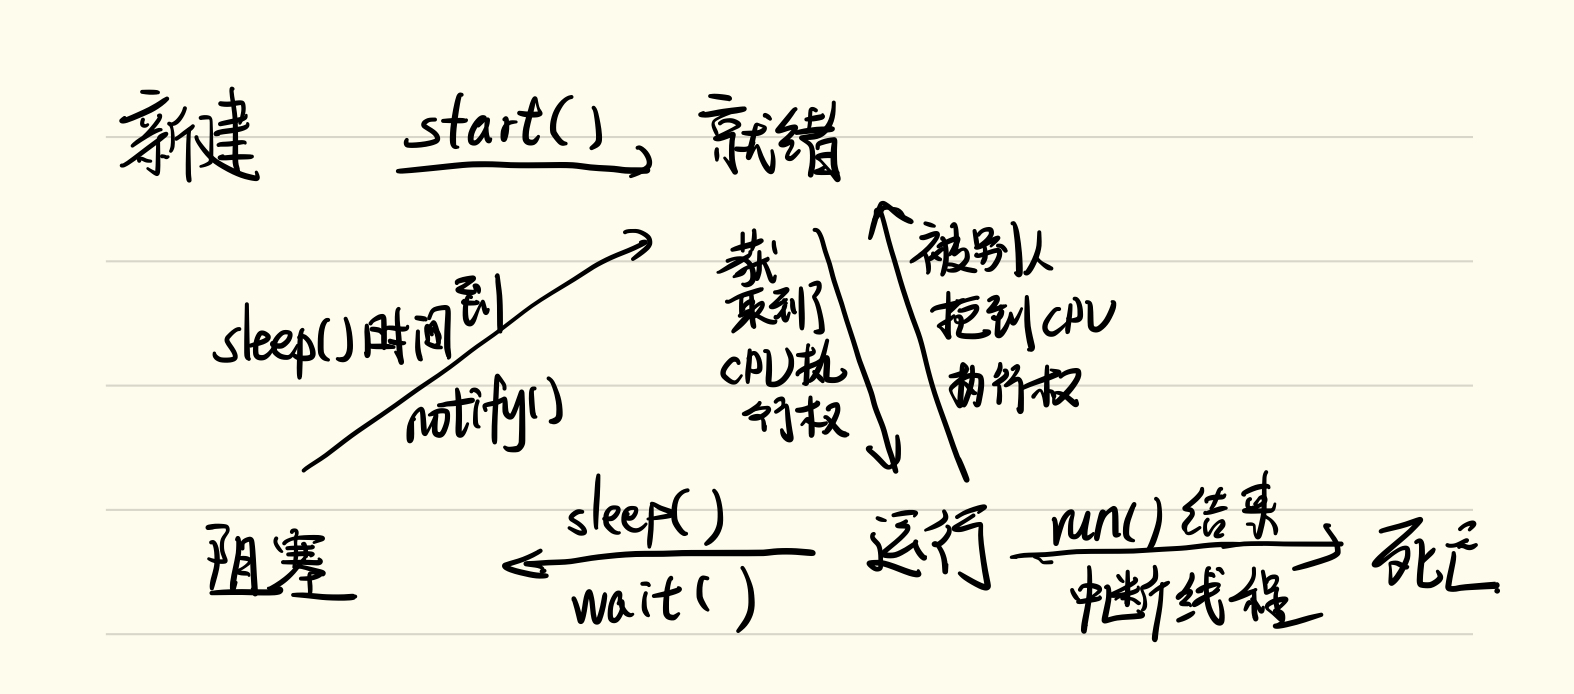 新建
start()
就绪
sleep()时间到
notify()
获
取到了
CPU执
行权
被别人
抢到CPU
执行权
阻塞
sleep()
wait()
运行
run()结束
中断线程
死亡